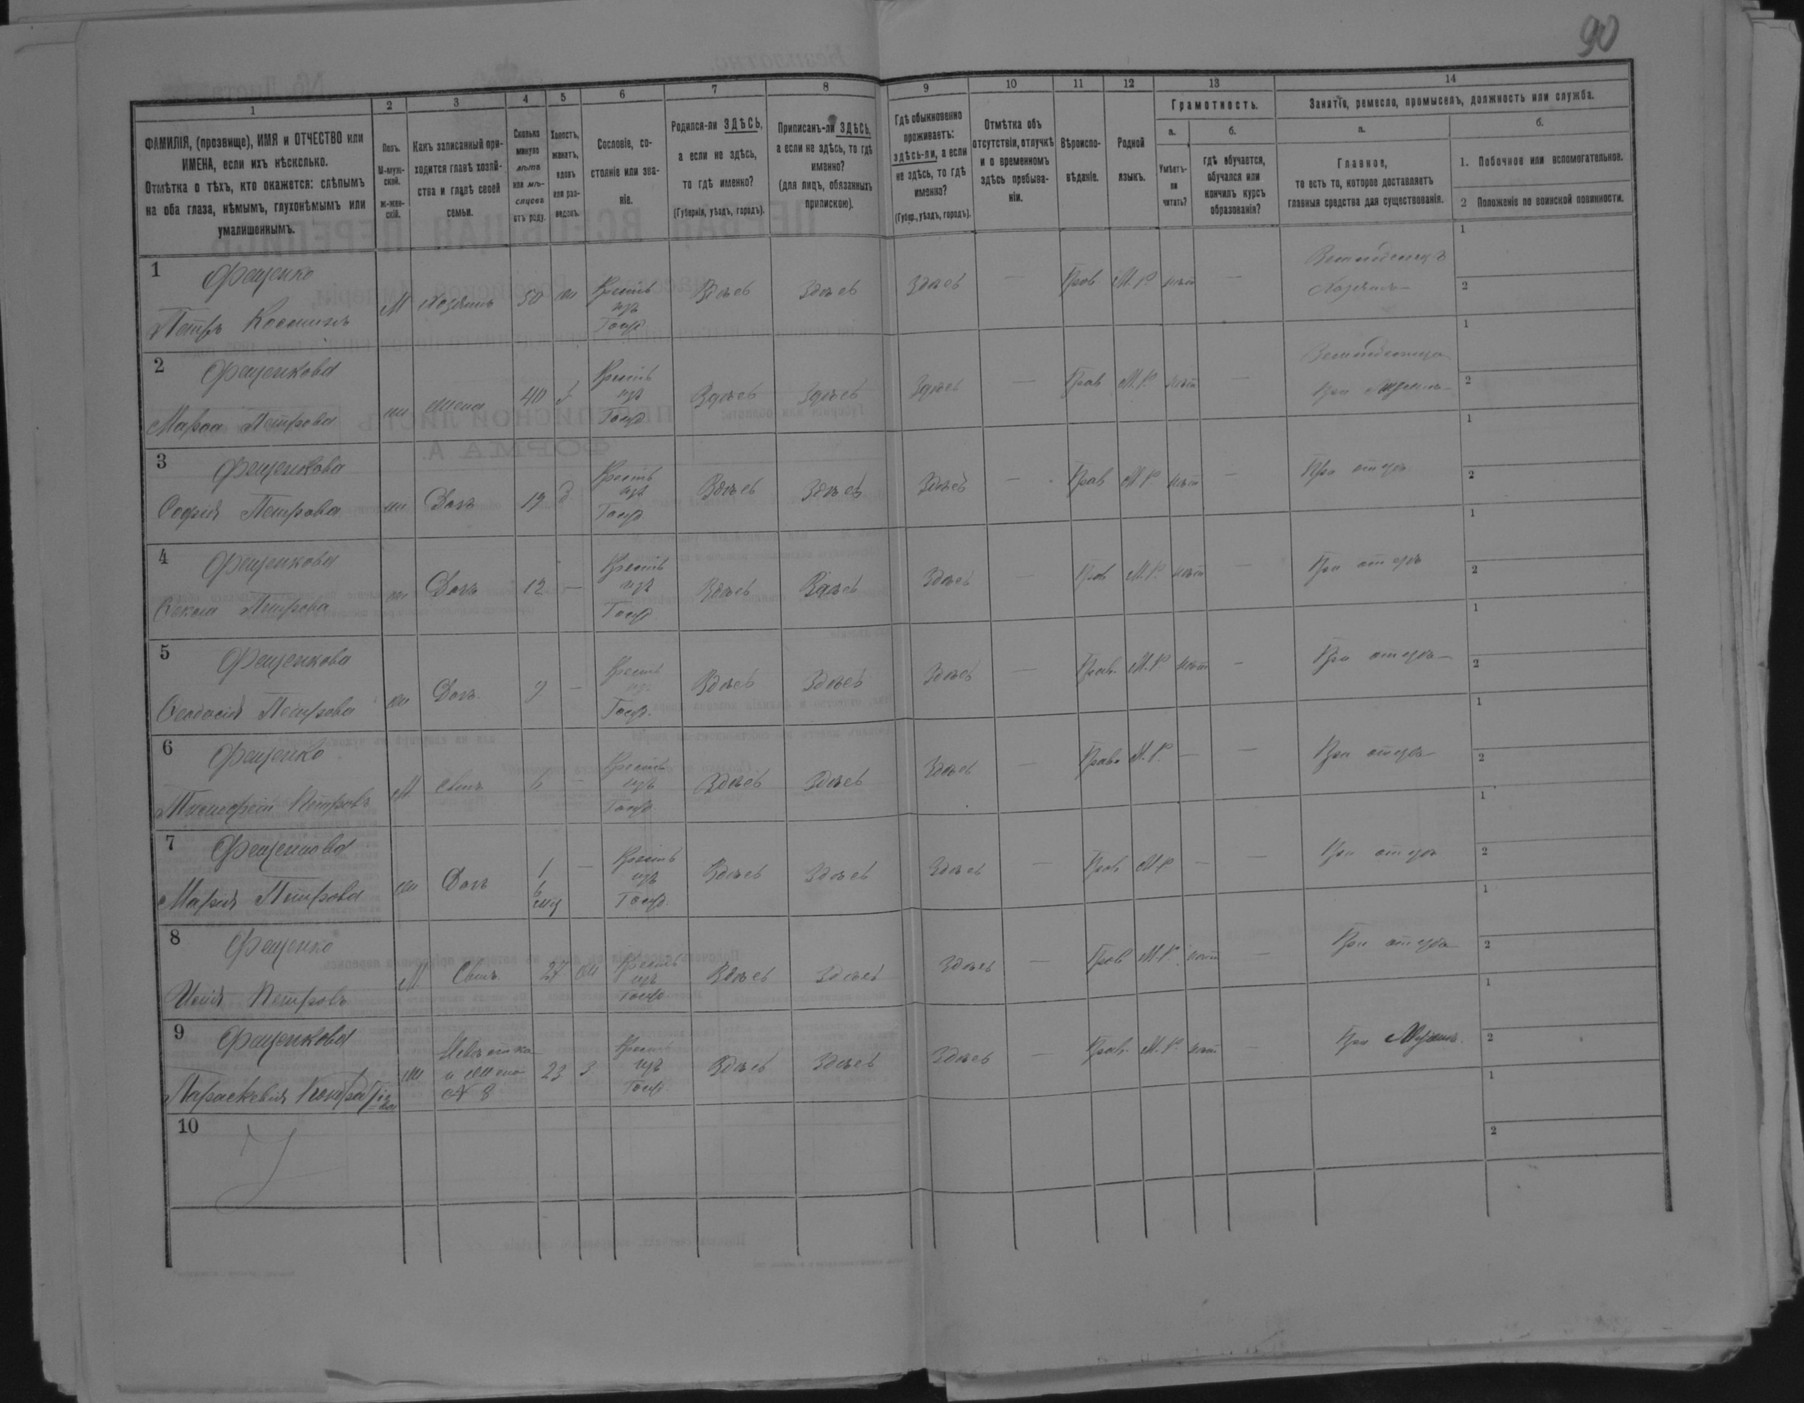 90
1 2 3 4 5 6 7 8 9 10 11 12 13 14
ФАМИЛІЯ, (прозвище), ИМЯ и ОТЧЕСТВО или
ИМЕНА, если ихъ нѣсколько.
Отмѣтка о тѣхъ, кто окажется: слѣпымъ
на оба глаза, нѣмымъ, глухонѣмымъ или
умалишеннымъ.
Полъ.
М-муж-
ской.
ж-жен-
скій.
Какъ записанный при-
ходится главѣ хозяй-
ства и главѣ своей
семьи.
Сколько
минуло
лѣтъ
или мѣ-
сяцевъ
отъ роду.
Холостъ,
женатъ,
вдовъ
или раз-
веденъ.
Сословіе, со-
стояніе или зва-
ніе.
Родился-ли ЗДѢСЬ,
а если не здѣсь,
то гдѣ именно?
(Губернія, уѣздъ, городъ).
Приписанъ-ли ЗДѢСЬ,
а если не здѣсь, то гдѣ
именно?
(для лицъ, обязанныхъ
припискою).
Гдѣ обыкновенно
проживаетъ:
здѣсь-ли, а если
не здѣсь, то гдѣ
именно?
(Губер., уѣздъ, городъ).
Отмѣтка объ
отсутствіи, отлучкѣ
и о временномъ
здѣсь пребыва-
ніи.
Вѣроиспо-
вѣданіе.
Родной
языкъ.
Грамотность.
а.
Умѣетъ-
ли
читать?
б.
гдѣ обучается,
обучался или
кончилъ курсъ
образованія?
Занятіе, ремесло, промыселъ, должность или служба.
а.
Главное,
то есть то, которое доставляетъ
главныя средства для существованія.
б.
1. Побочное или вспомогательное.
2 Положеніе по воинской повинности.
1 Фещенко
Петръ М хозяинъ 50 ж Кресть изъ Госуд Здѣсь Здѣсь Здѣсь — Прав М.Р нѣтъ — Хозяинъ 1 2
2 Фещенкова
Марѳа Петрова ж жена 40 З Кресть изъ Госуд Здѣсь Здѣсь Здѣсь — Прав М.Р нѣтъ — При 1 2
3 Фещенкова
Софія Петрова ж Дочь 19 Кресть изъ Госуд Здѣсь Здѣсь Здѣсь — Прав М.Р нѣтъ — При отцѣ 1 2
4 Фещенкова
Петрова ж Дочь 12 — Кресть изъ Госуд Здѣсь Здѣсь Здѣсь — Прав М.Р. нѣтъ — При отцѣ 1 2
5 Фещенкова
Феодосія Петрова ж Дочь 9 — Кресть изъ Госуд. Здѣсь Здѣсь Здѣсь — Прав. М.Р нѣтъ — При отцѣ 1 2
6 Фещенко
Тимофей Петровъ М Сынъ 6 — Кресть изъ Госуд Здѣсь Здѣсь Здѣсь — Прав М.Р. — — При отцѣ 1 2
7 Фещенкова
Марія Петрова ж Дочь 1 6 мѣ — Кресть изъ Госуд. Здѣсь Здѣсь Здѣсь — Прав М.Р — — При отцѣ 1 2
8 Фещенко
Петровъ М Сынъ 27 ж Кресть изъ Госуд. Здѣсь Здѣсь Здѣсь — Прав М.Р. нѣтъ — При отцѣ 1 2
9 Фещенкова
Параскевія ж Невѣстка и жена № 8 23 З Кресть изъ Госуд. Здѣсь Здѣсь Здѣсь — Прав. М.Р нѣтъ — При 1 2
10 1 2